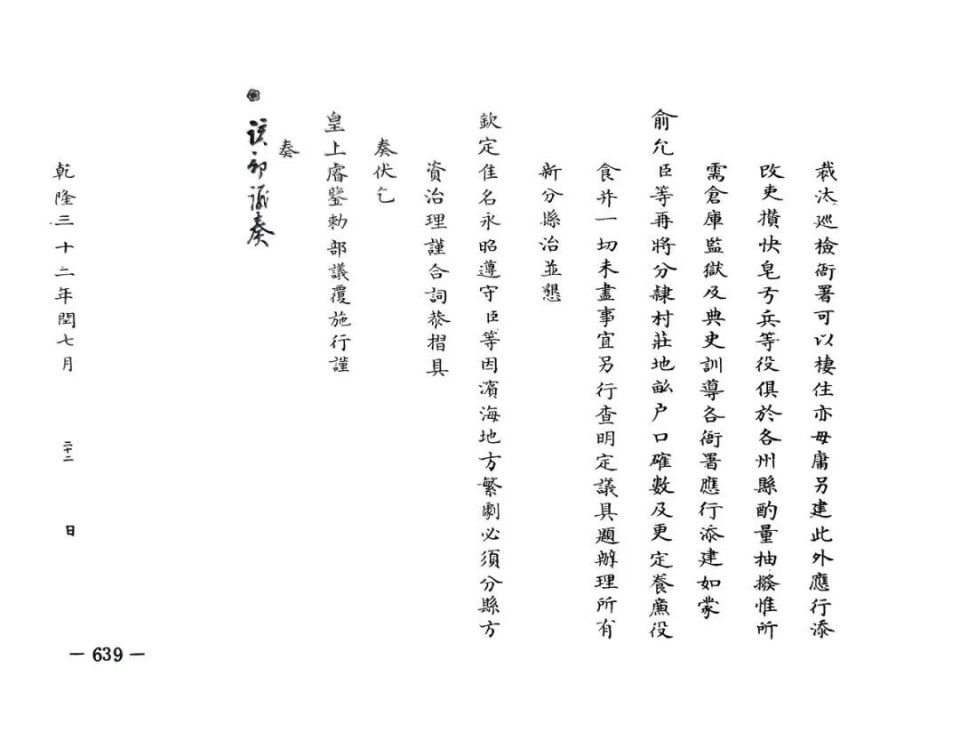 裁汰巡檢衙署可以棲住亦毋庸另建此外應行添
改吏攢快皂弓兵等役俱於各州縣酌量抽撥惟所
需倉庫監獄及典吏訓導各衙署應行添建如蒙
俞允臣等再將分隸村莊地畝户口確數及更定養廉役
食并一切未盡事宜另行查明定議具題辦理所有
新分縣治並懇
欽定佳名永昭遵守臣等因濱海地方繁劇必須分縣方
資治理謹合詞恭摺具
奏伏乞
皇上睿鑒勅部議覆施行謹
奏
該部議奏
乾隆三十二年閏七月 二十二 日
— 639 —